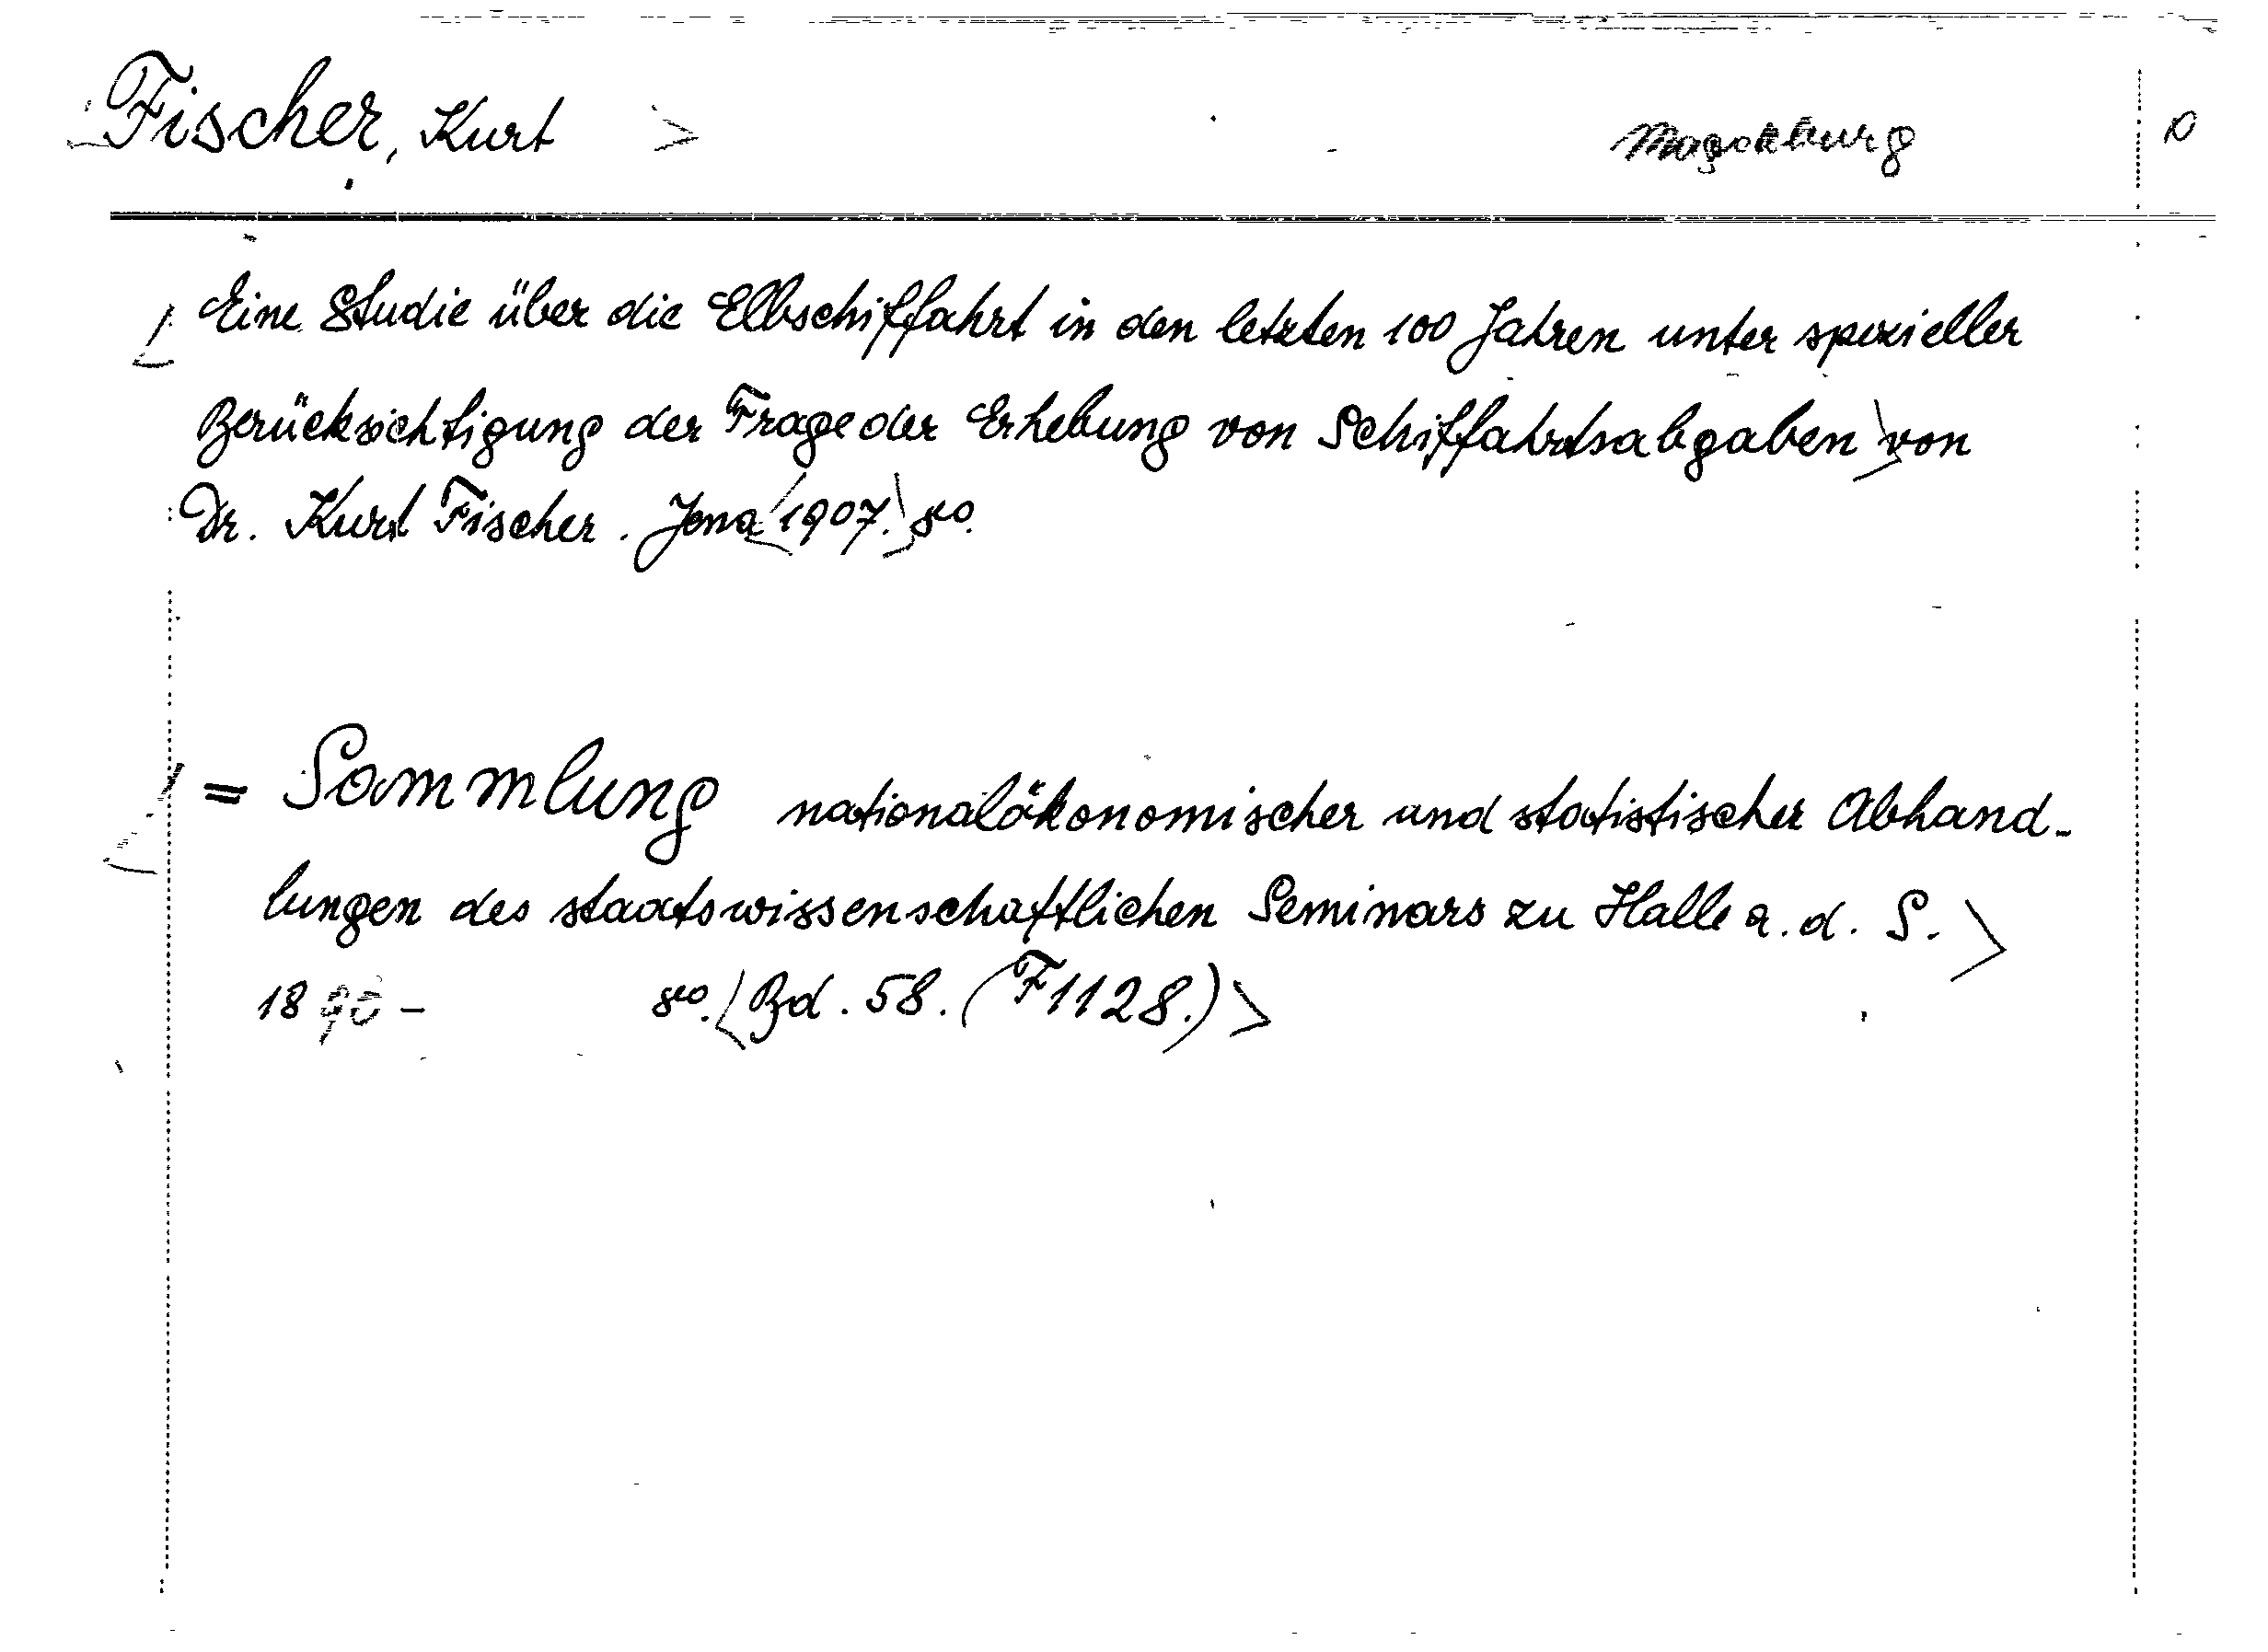 Fischer, Kurt > Magdeburg D
< Eine Studie über die Elbschiffahrt in den letzten 100 Jahren unter spezieller
Berücksichtigung der Frage der Erhebung von Schiffahrtsabgaben > von
Dr. Kurt Fischer. Jena < 1907. > 8vo.
< = Sammlung nationalökonomischer und statistischer Abhand-
lungen des staatswissenschaftlichen Seminars zu Halle a. d. S. >
1890 - 8vo. < Bd. 58. (F1128.) >